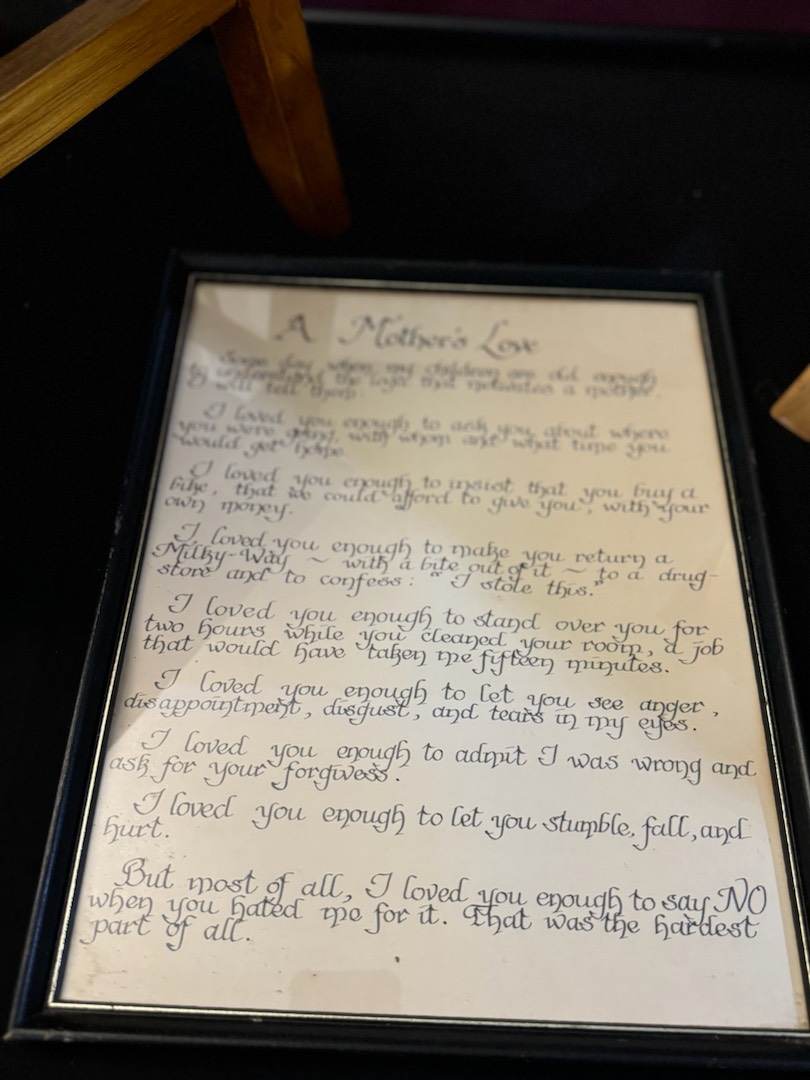 A Mother's Love
Some day when my children are old enough
to understand the logic that motivates a mother,
I will tell them:
I loved you enough to ask you about where
you were going, with whom and what time you
would get home.
I loved you enough to insist that you buy a
bike, that we could afford to give you, with your
own money.
I loved you enough to make you return a
Milky-Way ~ with a bite out of it ~ to a drug-
store and to confess: "I stole this."
I loved you enough to stand over you for
two hours while you cleaned your room, a job
that would have taken me fifteen minutes.
I loved you enough to let you see anger,
disappointment, disgust, and tears in my eyes.
I loved you enough to admit I was wrong and
ask for your forgivess.
I loved you enough to let you stumble, fall, and
hurt.
But most of all, I loved you enough to say NO
when you hated me for it. That was the hardest
part of all.